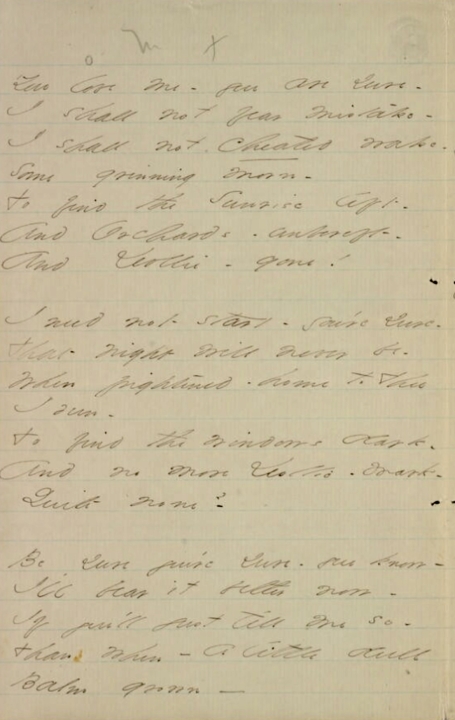 o m x
You love me - you are sure -
I shall not fear mistake -
I shall not cheated wake -
Some grinning morn -
To find the Sunrise left -
And Orchards - unbereft -
And Dollie - gone!
I need not start - you're sure -
That night will never be -
When frightened - home to Thee
I run -
To find the windows dark -
And no more Dollie - mark -
Quite none?
Be sure you're sure - you know -
I'll bear it better now -
If you'll just tell me so -
Than when - a little dull
Balm grown -